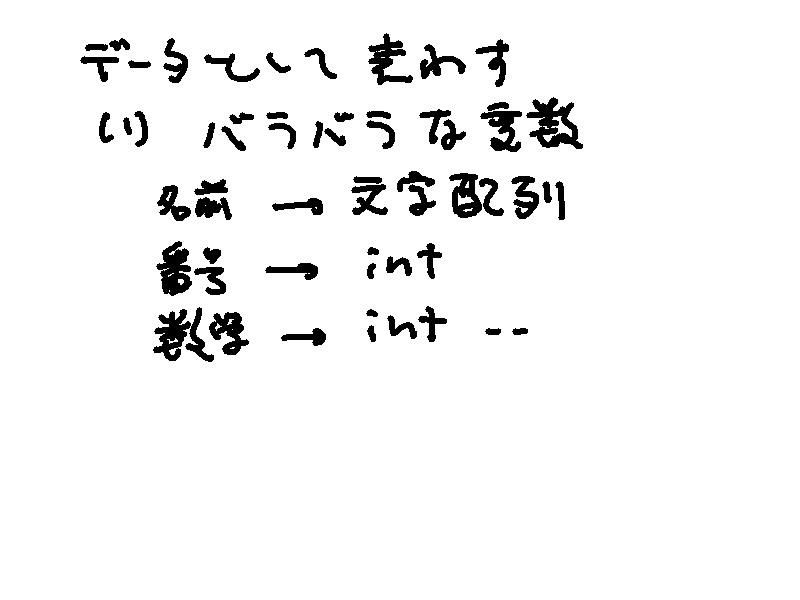 データとして表わす
(1) バラバラな変数
名前 → 文字配列
番号 → int
数学 → int --